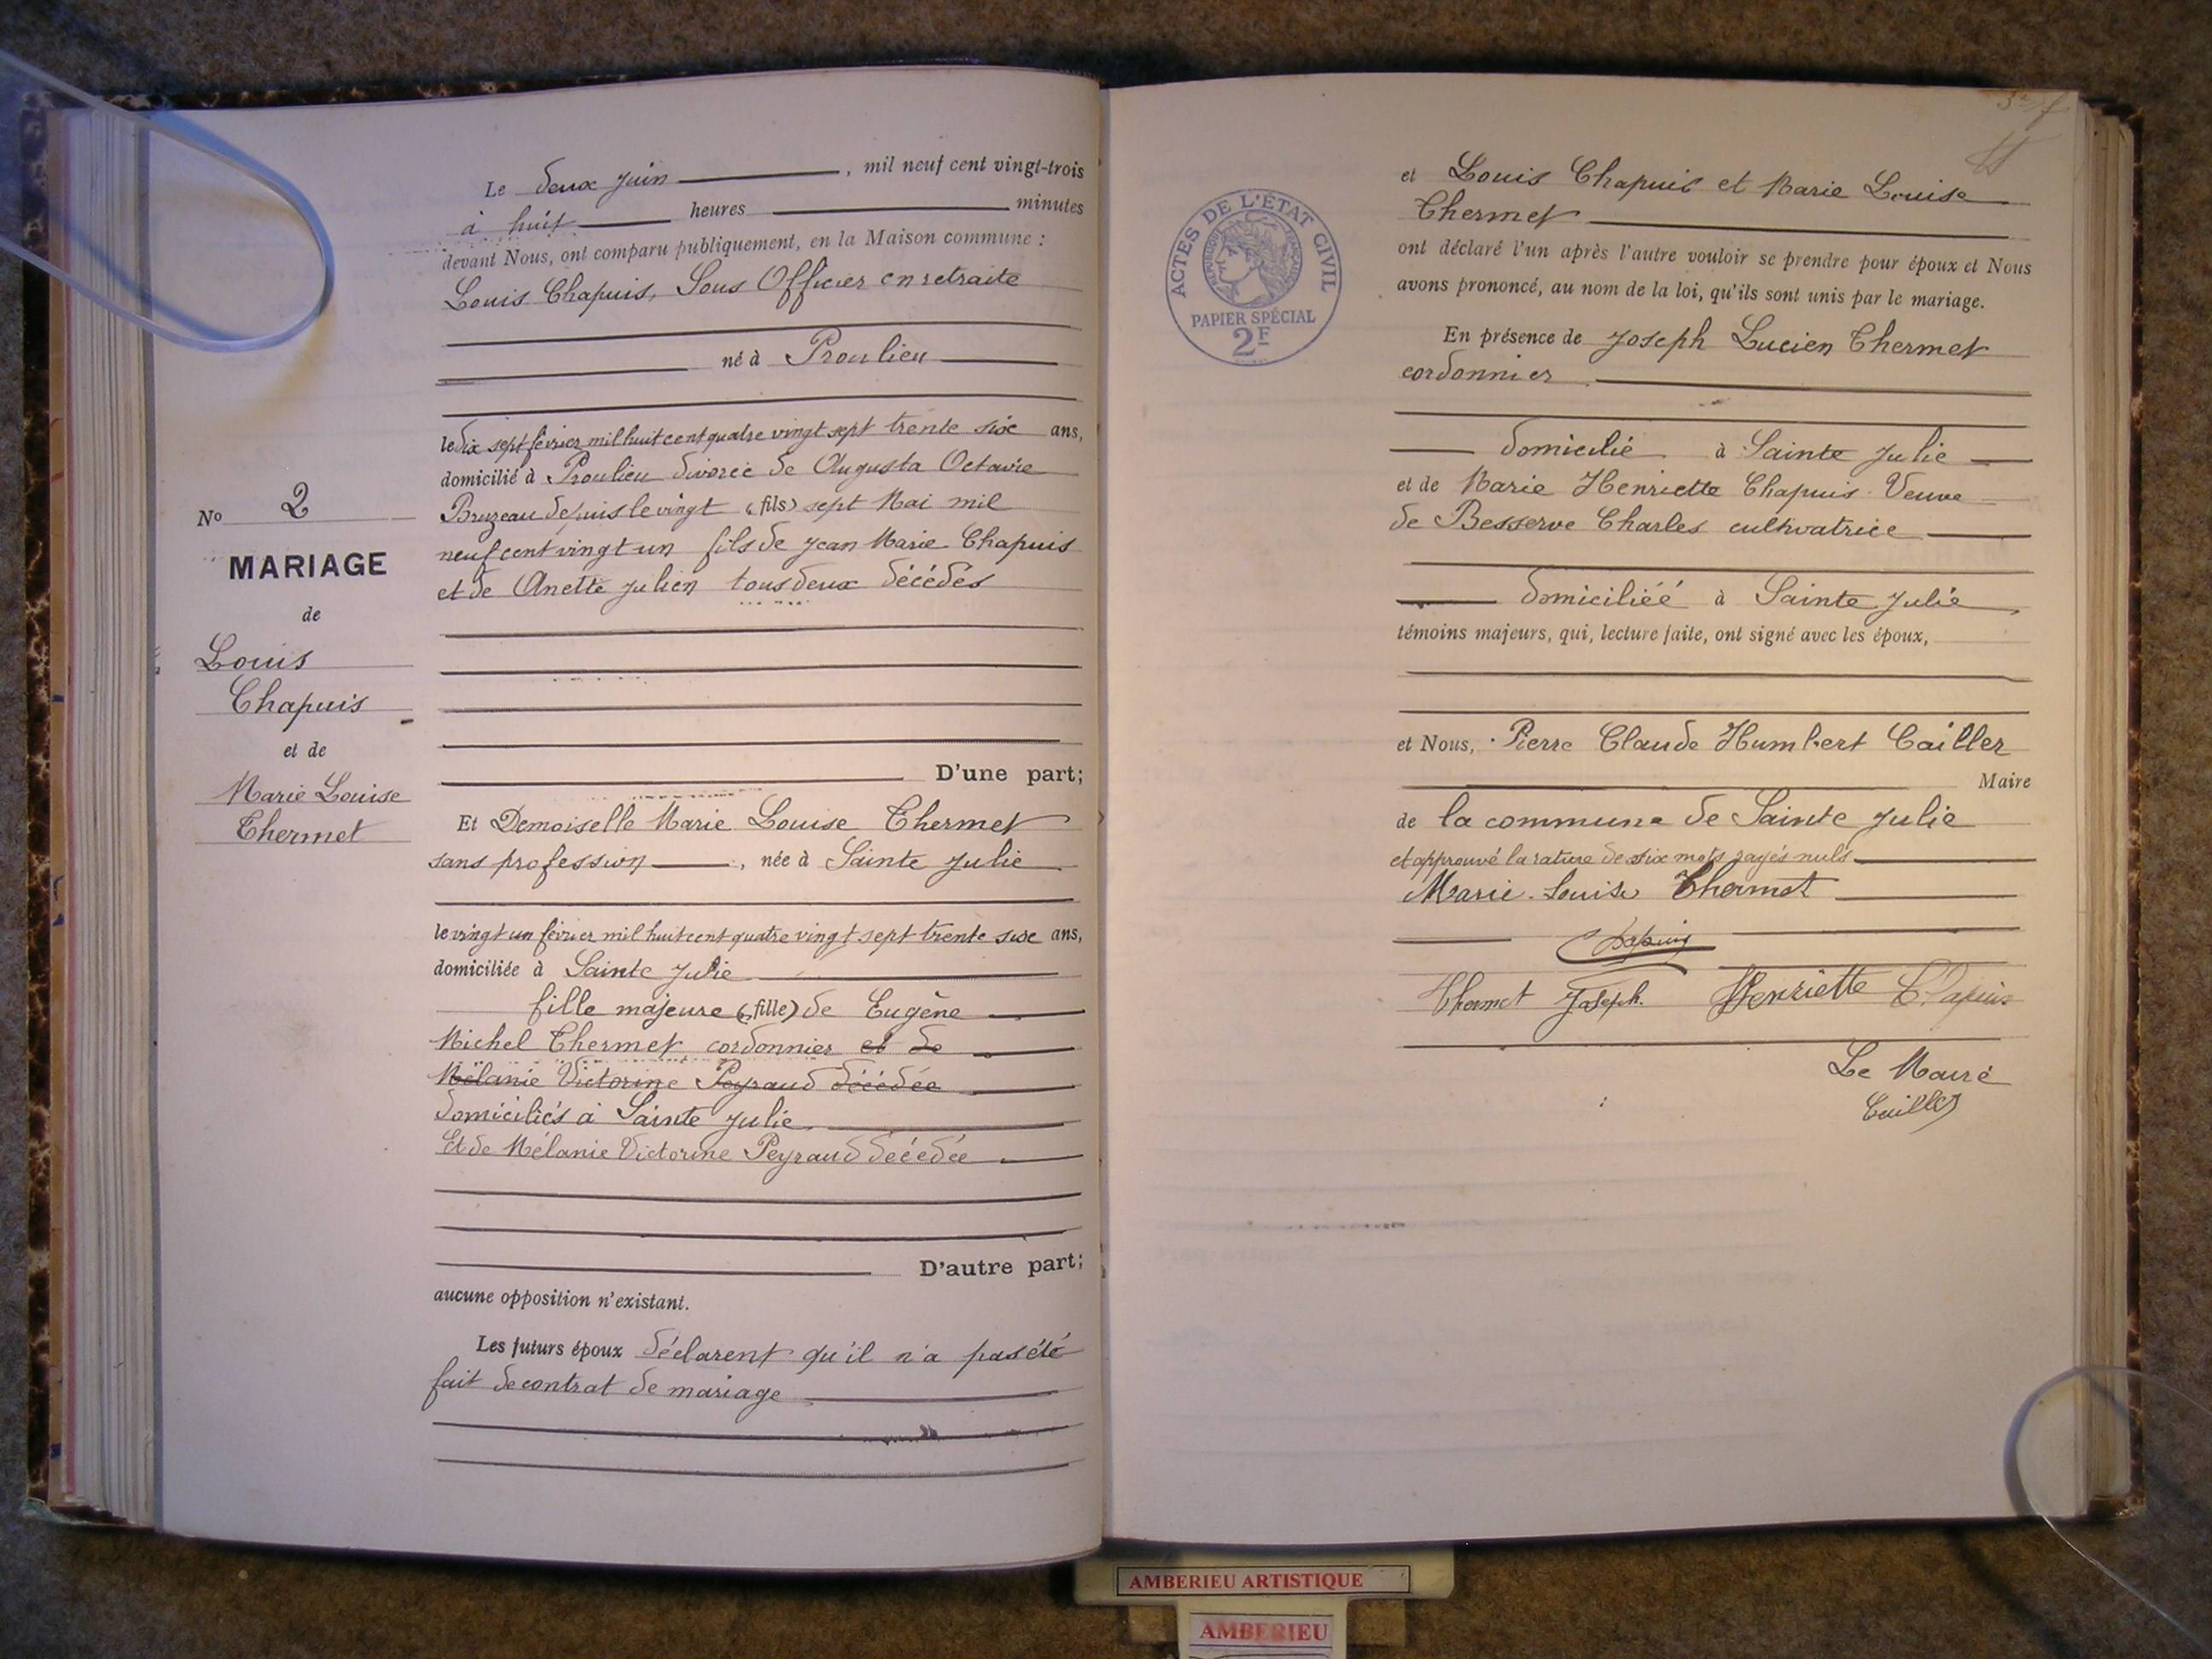 Le deux juin, mil neuf cent vingt-trois
à huit heures minutes
devant Nous, ont comparu publiquement, en la Maison commune :
Louis Chapuis, Sous Officier en retraite
né à Proulieu
le dix sept février mil huit cent quatre vingt sept trente six ans,
domicilié à Proulieu divorcé de Augusta Octavie
Bruzeau depuis le vingt (fils) sept Mai mil
neuf cent vingt un fils de Jean Marie Chapuis
et de Anette Julien tous deux décédés
No 2
MARIAGE
de
Louis
Chapuis
et de
Marie Louise
Thermet
D'une part;
Et Demoiselle Marie Louise Thermet
sans profession, née à Sainte Julie
le vingt un février mil huit cent quatre vingt sept trente six ans,
domiciliée à Sainte Julie
fille majeure (fille) de Eugène
Michel Thermet cordonnier et de
Mélanie Victorine Peyraud décédée
domiciliés à Sainte Julie
Et de Mélanie Victorine Peyraud décédée
D'autre part;
aucune opposition n'existant.
Les futurs époux déclarent qu'il n'a pas été
fait de contrat de mariage
ACTES DE L'ÉTAT CIVIL
RÉPUBLIQUE FRANÇAISE
PAPIER SPÉCIAL
2F
et Louis Chapuis et Marie Louise
Thermet
ont déclaré l'un après l'autre vouloir se prendre pour époux et Nous
avons prononcé, au nom de la loi, qu'ils sont unis par le mariage.
En présence de Joseph Lucien Thermet
cordonnier
domicilié à Sainte Julie
et de Marie Henriette Chapuis Veuve
de Besserve Charles cultivatrice
domiciliéé à Sainte Julie
témoins majeurs, qui, lecture faite, ont signé avec les époux,
et Nous, Pierre Claude Humbert Cailler
Maire
de la commune de Sainte Julie
et approuvé la rature de six mots rayés nuls
Marie-Louise Thermet
Chapuis
Thermet Joseph. Henriette Chapuis
Le Maire
Cailler
AMBERIEU ARTISTIQUE
AMBERIEU